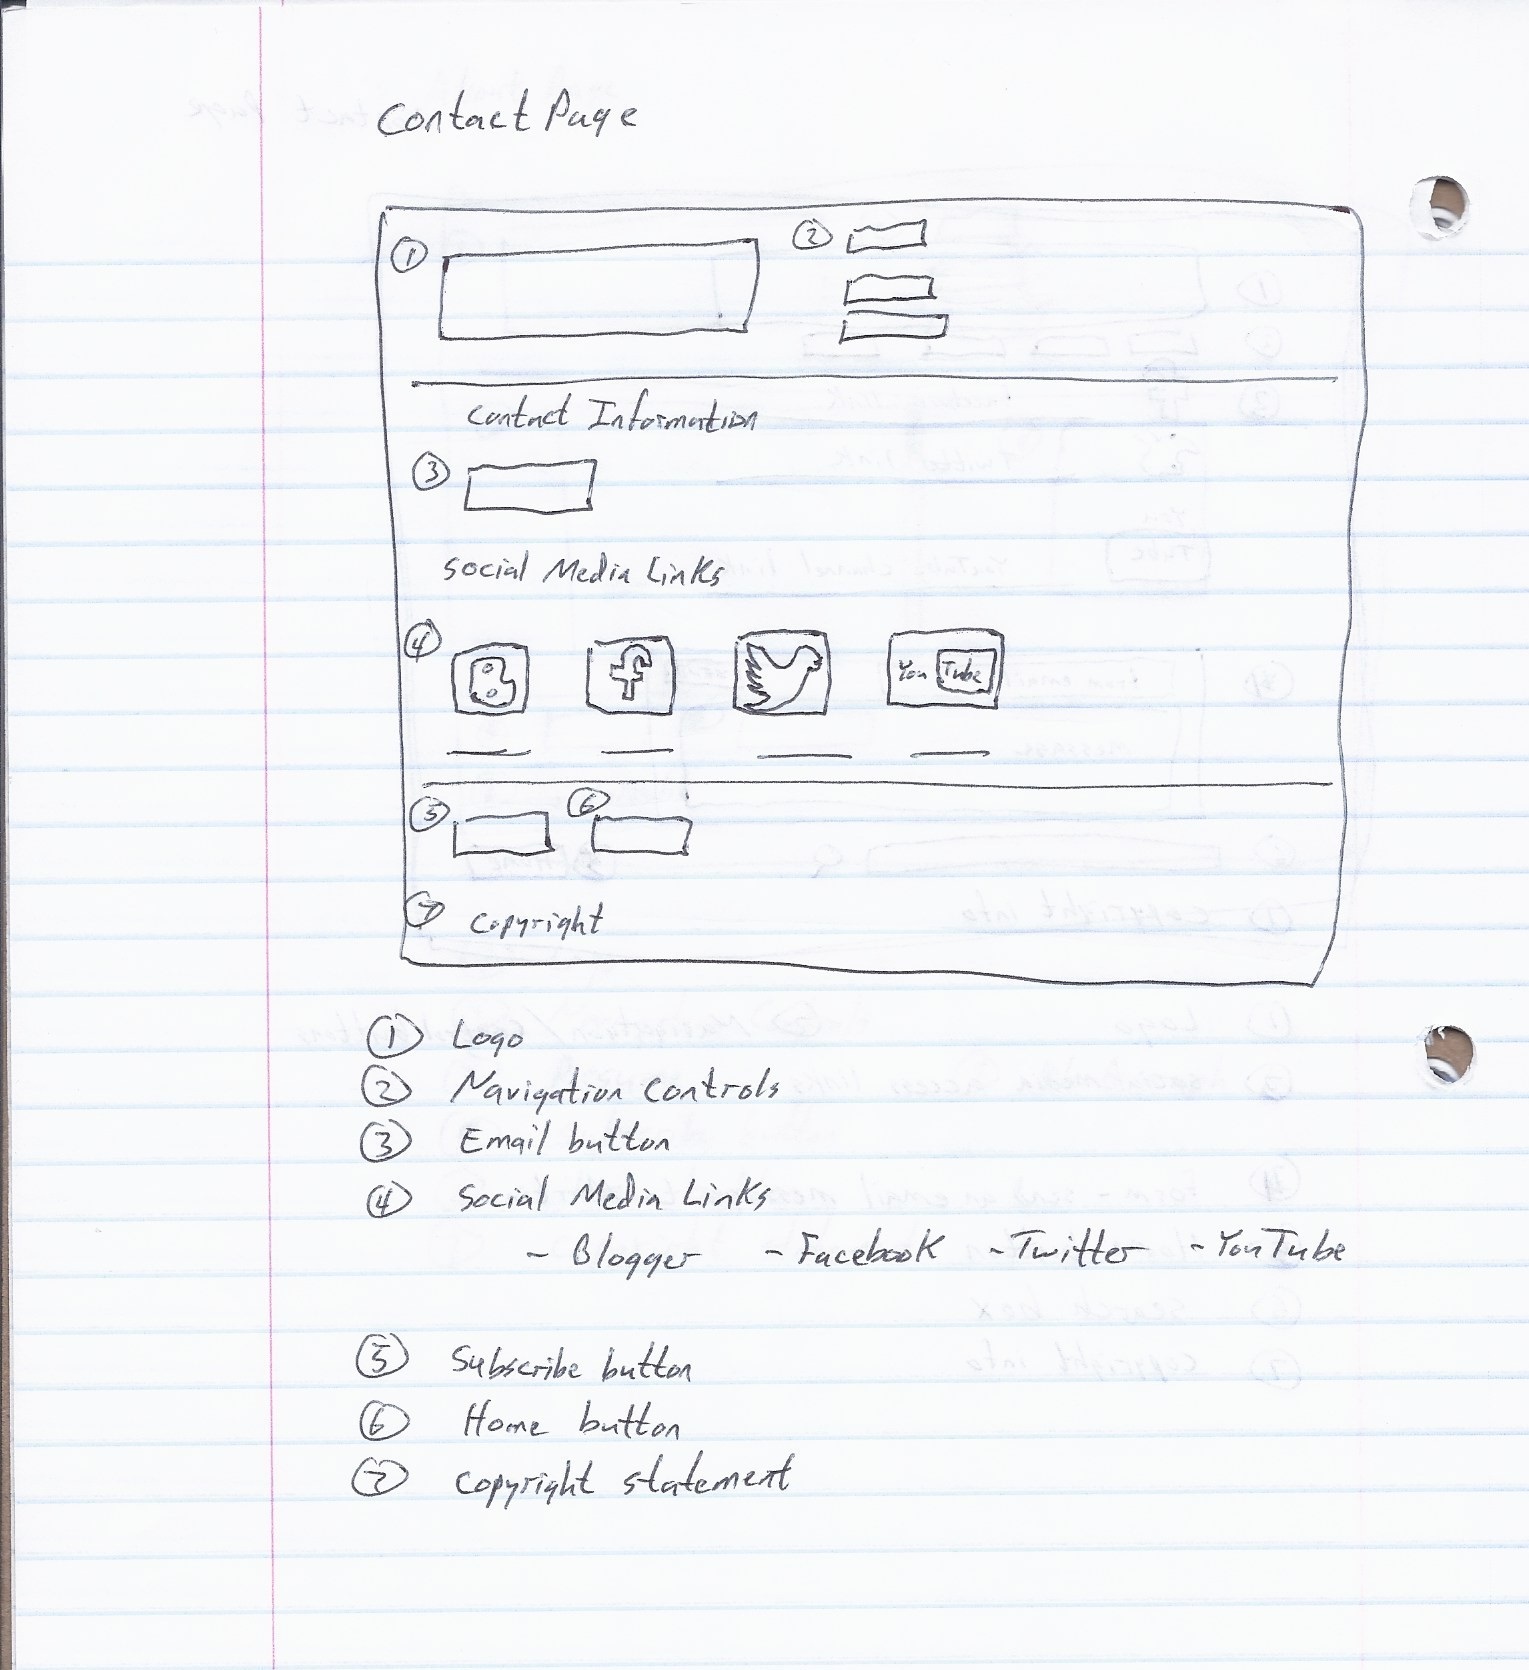 Contact Page
1
2
Contact Information
3
Social Media Links
4
B f You Tube
5 6
7 Copyright
1 Logo
2 Navigation Controls
3 Email button
4 Social Media Links
- Blogger - Facebook - Twitter - YouTube
5 Subscribe button
6 Home button
7 Copyright statement